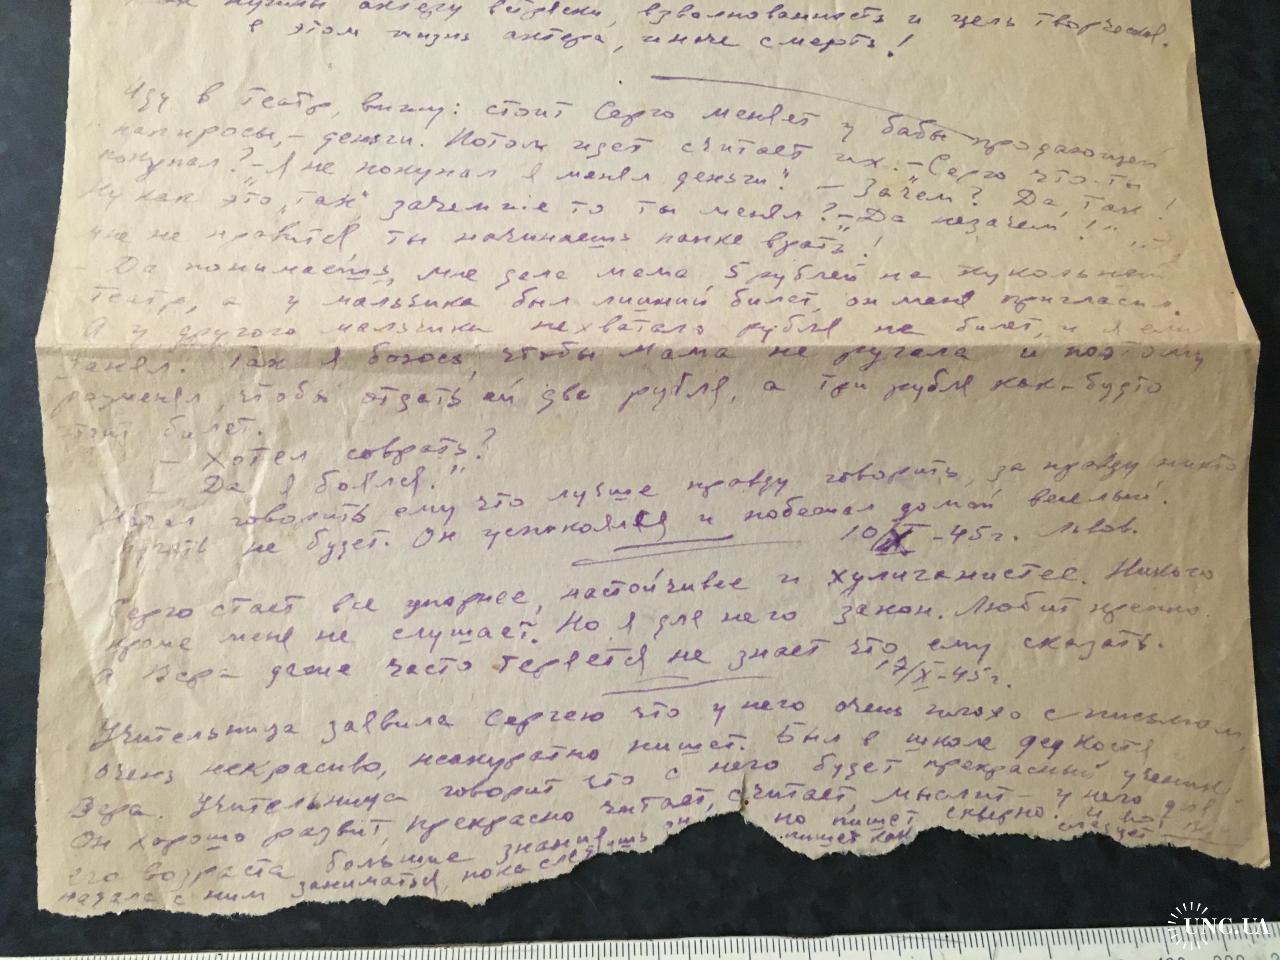 нужны актеру встряски, взволнованность и цель творческая.
в этом жизнь актера, иначе смерть!
Иду в театр, вижу: стоит Серго меняет у бабы продающей
папиросы, – деньги. Потом идет считает их. – Серго что ты
покупал? – Я не покупал я менял деньги". – Зачем? Да, так!
Ну как это "так" зачем же то ты менял? – Да незачем!"
мне не нравится ты начинаешь папке врать!
– Да понимаешь, мне дала мама 5 рублей на кукольный
театр, а у мальчика был лишний билет, он меня пригласил.
А у другого мальчика нехватало рубля на билет, и я ему
занял. Так я боюсь, чтобы мама не ругала и поэтому
разменял, чтобы отдать ей два рубля, а три рубля как-будто
стоит билет.
– Хотел соврать?
– Да я боялся."
Начал говорить ему что лучше правду говорить, за правду никто
ругать не будет. Он успокоился и побежал домой веселый.
10/X-45г. Львов.
Серго стает все упорнее, настойчивее и хулиганистее. Никого
кроме меня не слушает. Но я для него закон. Любит крепко.
а Вера даже часто теряется не знает что ему сказать.
17/X-45г.
Учительница заявила Сергею что у него очень плохо с письмом,
очень некрасиво, неакуратно пишет. Был в школе дед Костя
Вера. Учительница говорит что с него будет прекрасный ученик.
Он хорошо развит, прекрасно читает, считает, мыслит – у него для
его возраста большие знания но пишет скверно. И
надала с ним заниматься, пока пишет как следует
UNC.UA